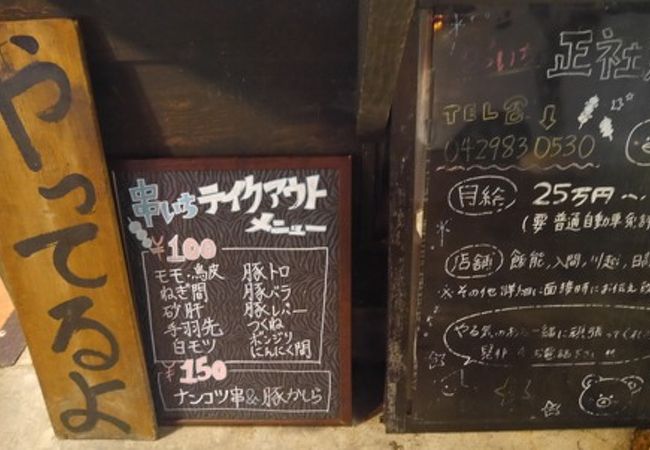 やってるよ
串いち テイクアウト
メニュー
¥100
モモ・鳥皮
ねぎ間
砂肝
手羽先
白モツ
豚トロ
豚バラ
豚レバー
つくね
ボンジリ
にんにく間
¥150
ナンコツ串&豚かしら
正社
TEL ↓
0429830530
月給 25万円〜
(要普通自動車免許
店舗 飯能,入間,川越,日高
※その他 詳細に面接時にお伝え
やる気のある 一緒に頑張ってくれ